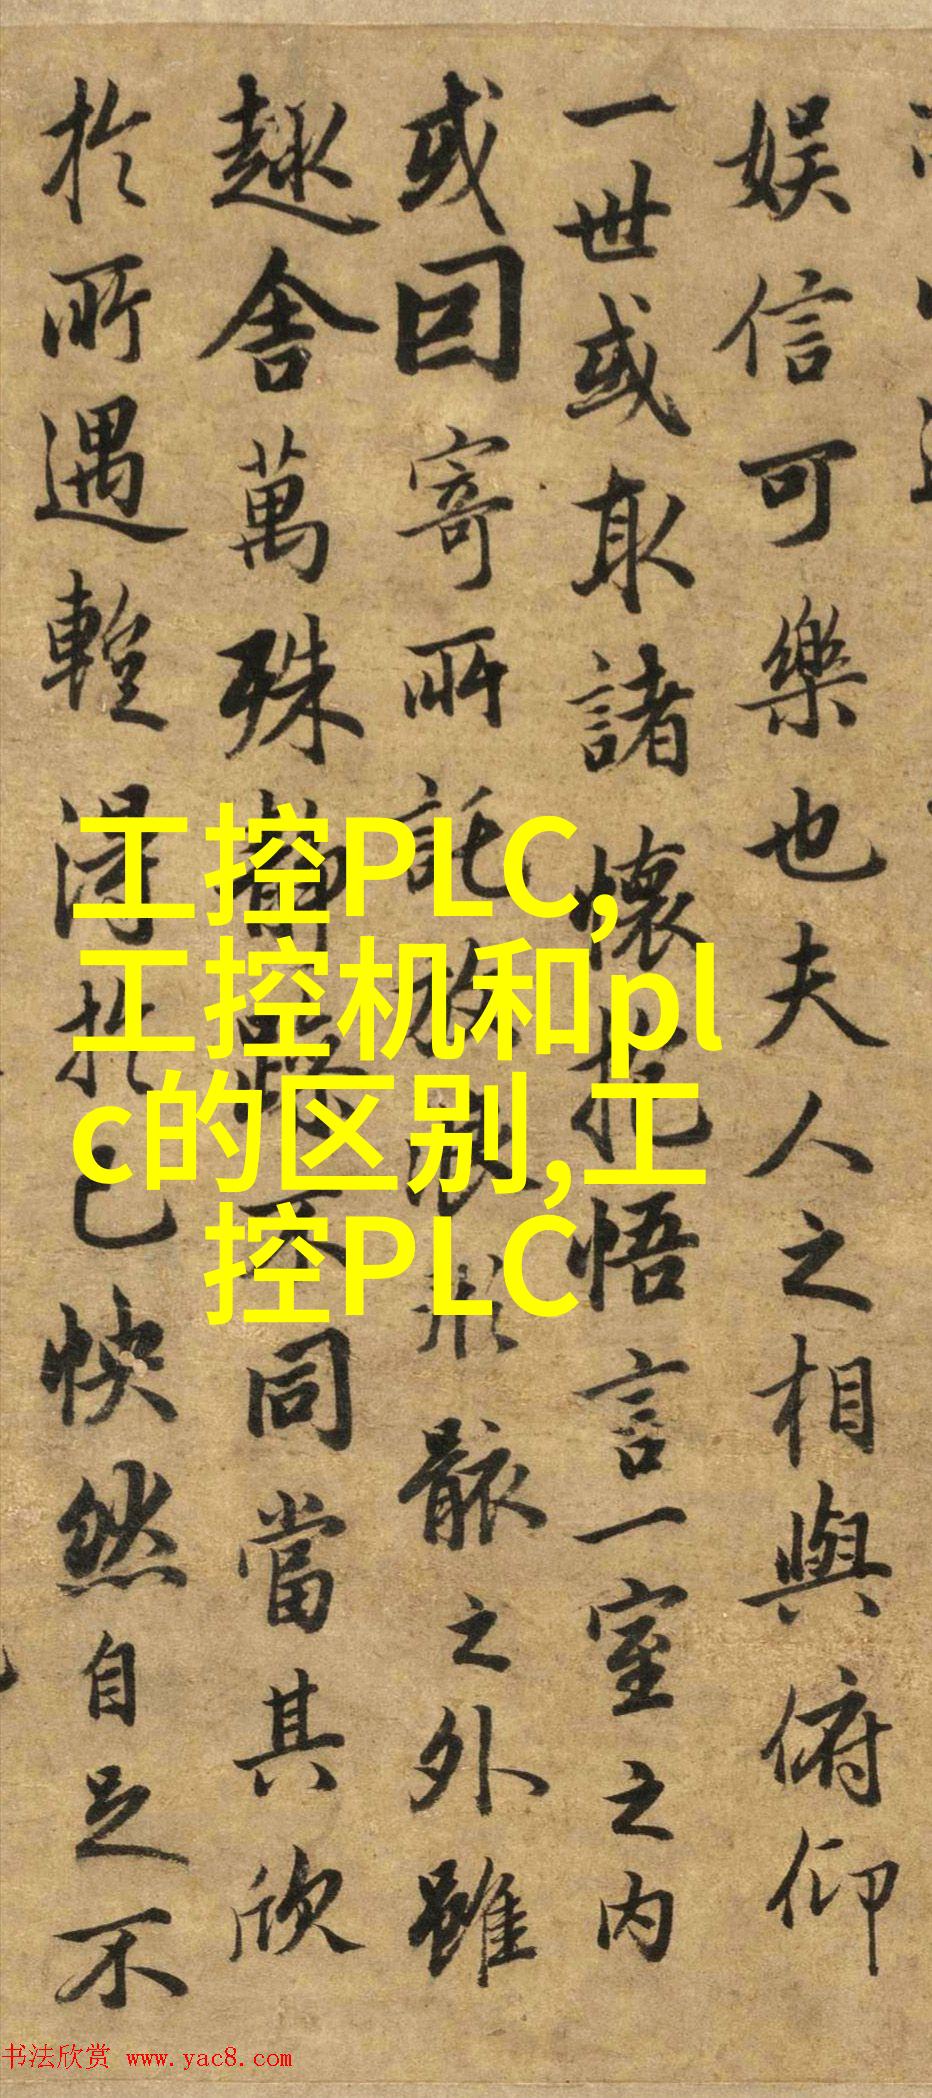 娱信可樂也夫人之相與俯仰
一世或取諸懷抱悟言一室之内
或因寄所託放浪形骸之外雖
趣舍萬殊静躁不同當其欣
於所遇暫得於己快然自足不
工控PLC,
工控机和pl
c的区别,工
控PLC
书法欣赏 www.yac8.com